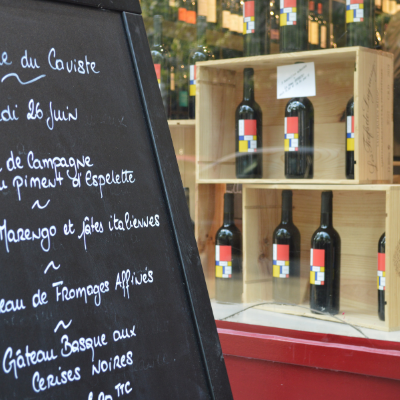 e du Caviste
di 26 Juin
de Campagne
u piment d'Espelette
~
Marengo et pâtes italiennes
~
eau de Fromages Affinés
~
Gâteau Basque aux
Cerises Noires
TTC